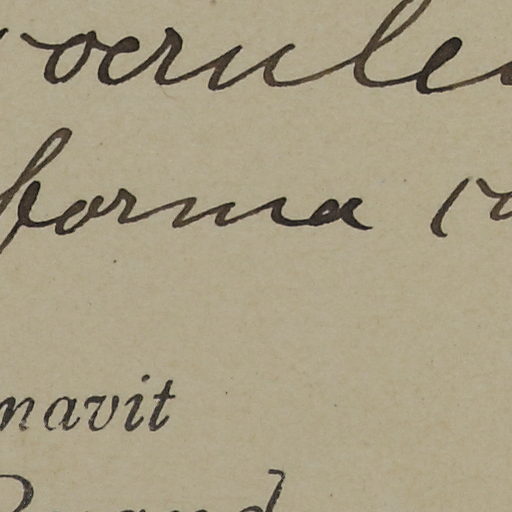 coerule
forma c
navit